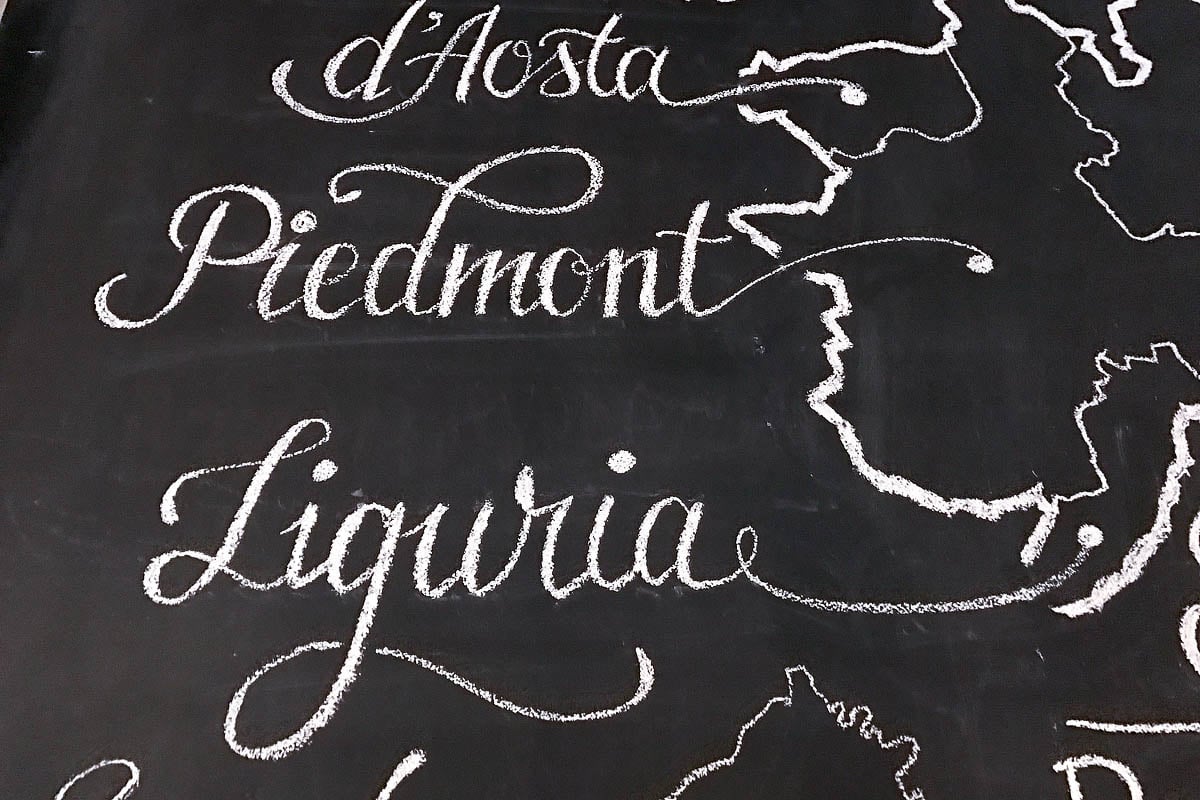 d'Aosta
Piedmont
Liguria